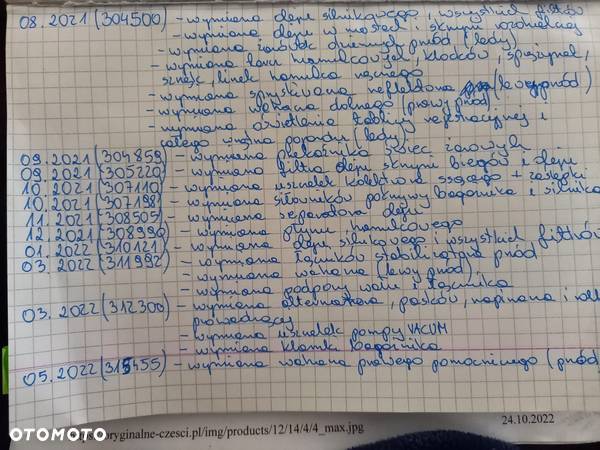 08.2021 (304500) - wymiana oleju silnikowego, wszystkich filtrów
- wymiana oleju w mostach i skrzyni rozdzielczej
- wymiana żarówek dziennych przód (ledy)
- wymiana tarcz hamulcowych, klocków, sprężynek,
szczęk linek hamulca ręcznego
- wymiana spryskiwacza reflektora (lewy przód)
- wymiana wahacza dolnego (prawy przód)
- wymiana oświetlenia tablicy rejestracyjnej i
całego wnętrza pojazdu (ledy)
09.2021 (304859) - wymiana przekaźnika świec żarowych
09.2021 (305220) - wymiana filtra oleju skrzyni biegów i oleju
10.2021 (307110) - wymiana uszczelek kolektora ssącego + zaślepki
10.2021 (307198) - wymiana siłowników pokrywy bagażnika i silnika
11.2021 (308505) - wymiana separatora oleju
12.2021 (308990) - wymiana płynu hamulcowego
01.2022 (310121) - wymiana oleju silnikowego i wszystkich filtrów
03.2022 (311992) - wymiana łączników stabilizatora przód
- wymiana wahacza (lewy przód)
- wymiana podpory wału i łącznika
03.2022 (312300) - wymiana alternatora, pasków, napinacza i rolki
prowadzącej
- wymiana uszczelek pompy VACUM
- wymiana klamki bagażnika
05.2022 (315455) - wymiana wahacza prawego pomocniczego (przód)
24.10.2022
oryginalne-czesci.pl/img/products/12/14/4/4_max.jpg
OTOMOTO